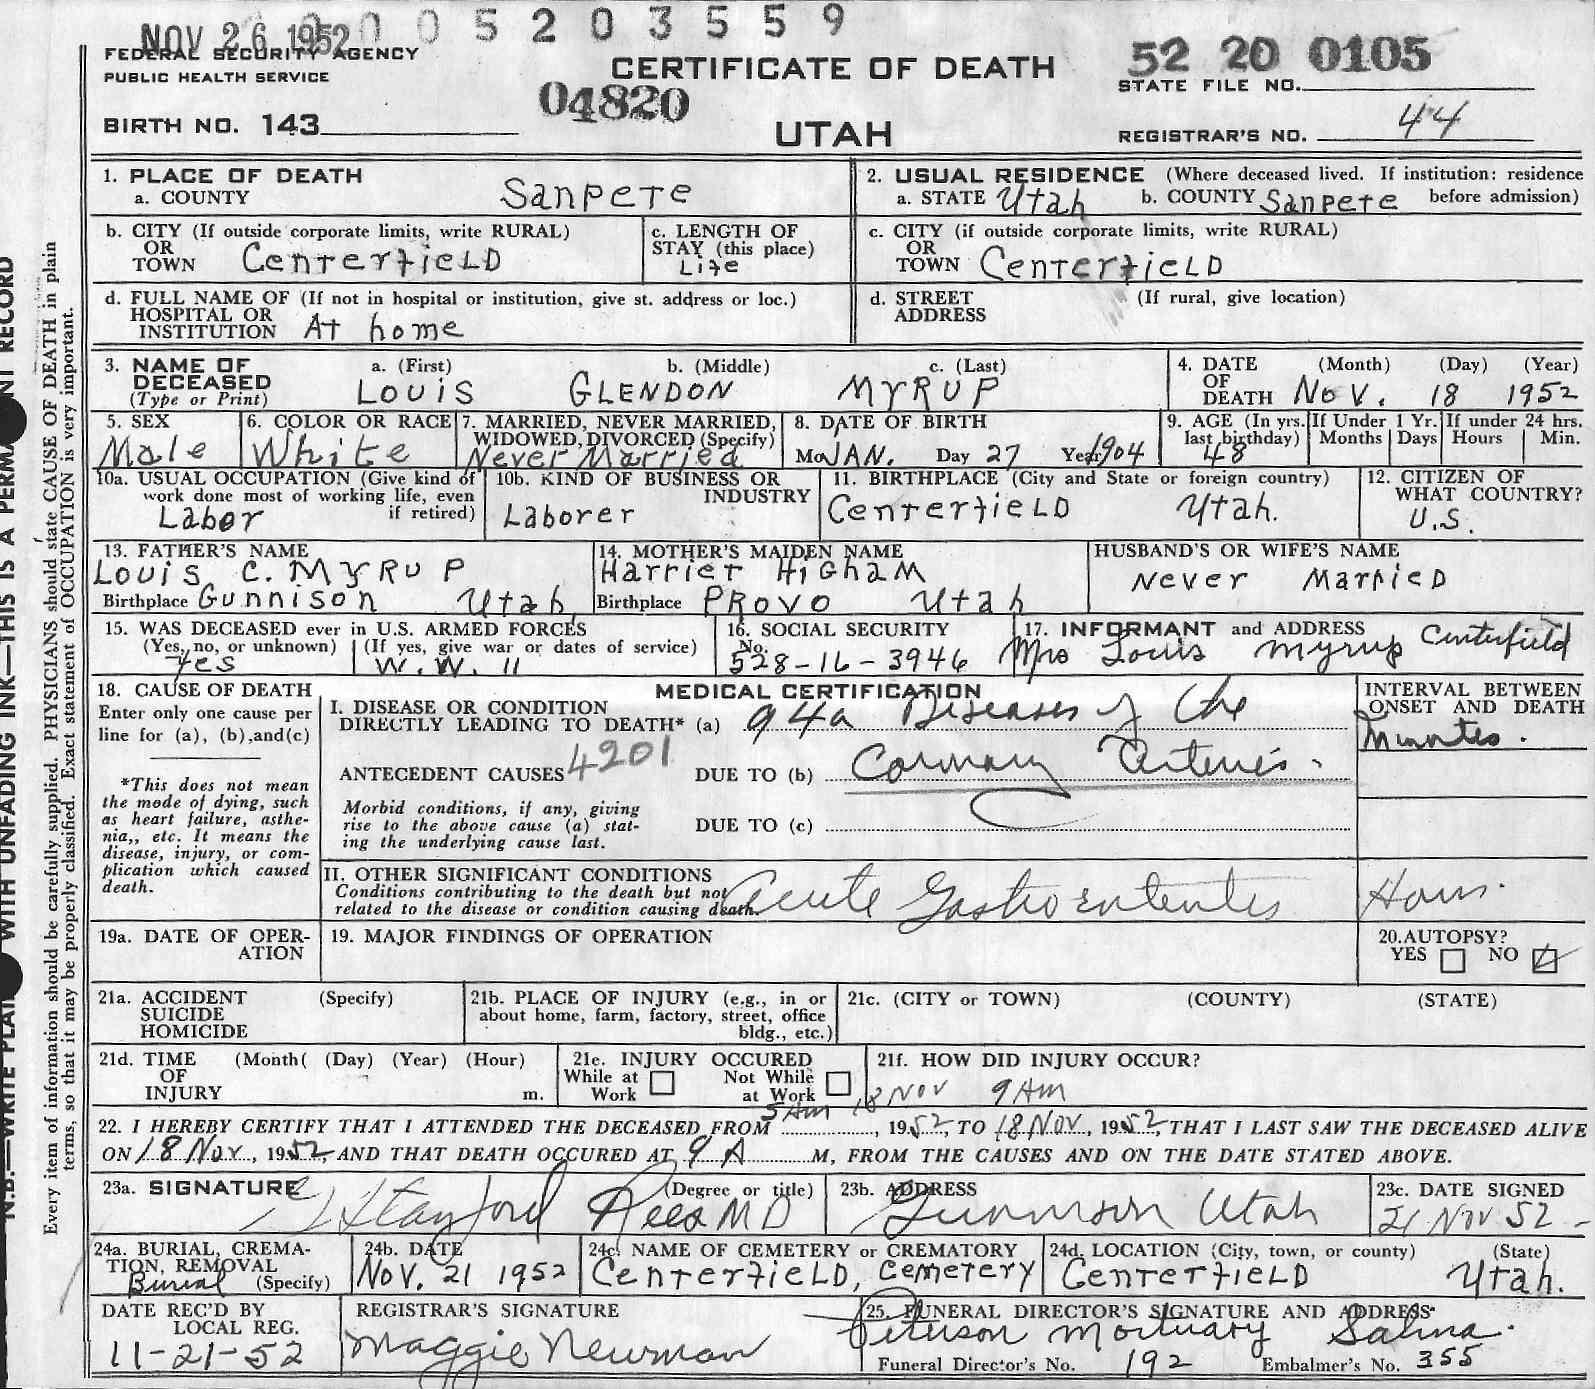 NOV 26 1952 0 0 0 5 2 0 3 5 5 9
FEDERAL SECURITY AGENCY
PUBLIC HEALTH SERVICE
CERTIFICATE OF DEATH
52 20 0105
STATE FILE NO.
04820
BIRTH NO. 143
UTAH
REGISTRAR'S NO. 44
1. PLACE OF DEATH
a. COUNTY Sanpete
2. USUAL RESIDENCE (Where deceased lived. If institution: residence before admission)
a. STATE Utah b. COUNTY Sanpete
b. CITY (If outside corporate limits, write RURAL)
OR
TOWN Centerfield
c. LENGTH OF
STAY (this place)
Life
c. CITY (if outside corporate limits, write RURAL)
OR
TOWN Centerfield
d. FULL NAME OF (If not in hospital or institution, give st. address or loc.)
HOSPITAL OR
INSTITUTION At home
d. STREET (If rural, give location)
ADDRESS
3. NAME OF
DECEASED
(Type or Print)
a. (First) b. (Middle) c. (Last)
Louis GLENDON MYRUP
4. DATE (Month) (Day) (Year)
OF
DEATH Nov. 18 1952
5. SEX
Male
6. COLOR OR RACE
White
7. MARRIED, NEVER MARRIED,
WIDOWED, DIVORCED (Specify)
Never Married
8. DATE OF BIRTH
Mo JAN. Day 27 Year 1904
9. AGE (In yrs. last birthday)
48
If Under 1 Yr.
Months Days
If under 24 hrs.
Hours Min.
10a. USUAL OCCUPATION (Give kind of
work done most of working life, even
if retired)
Labor
10b. KIND OF BUSINESS OR
INDUSTRY
Laborer
11. BIRTHPLACE (City and State or foreign country)
Centerfield Utah.
12. CITIZEN OF
WHAT COUNTRY?
U.S.
13. FATHER'S NAME
Louis C. Myrup
Birthplace Gunnison Utah
14. MOTHER'S MAIDEN NAME
Harriet Higham
Birthplace Provo Utah
HUSBAND'S OR WIFE'S NAME
Never Married
15. WAS DECEASED ever in U.S. ARMED FORCES
(Yes, no, or unknown) (If yes, give war or dates of service)
Yes W.W. 11
16. SOCIAL SECURITY
No.
528-16-3946
17. INFORMANT and ADDRESS Centerfield
Mrs Louis Myrup
18. CAUSE OF DEATH
Enter only one cause per
line for (a), (b), and (c)
*This does not mean
the mode of dying, such
as heart failure, asthe-
nia,, etc. It means the
disease, injury, or com-
plication which caused
death.
MEDICAL CERTIFICATION
I. DISEASE OR CONDITION
DIRECTLY LEADING TO DEATH* (a) 94a Diseases of the
ANTECEDENT CAUSES 4201 DUE TO (b) Coronary Arteries.
Morbid conditions, if any, giving
rise to the above cause (a) stat-
ing the underlying cause last.
DUE TO (c)
INTERVAL BETWEEN
ONSET AND DEATH
Minutes.
II. OTHER SIGNIFICANT CONDITIONS
Conditions contributing to the death but not
related to the disease or condition causing death.
Acute Gastroenteritis
Hours.
19a. DATE OF OPER-
ATION
19. MAJOR FINDINGS OF OPERATION
20. AUTOPSY?
YES NO
21a. ACCIDENT (Specify)
SUICIDE
HOMICIDE
21b. PLACE OF INJURY (e.g., in or
about home, farm, factory, street, office
bldg., etc.)
21c. (CITY or TOWN) (COUNTY) (STATE)
21d. TIME (Month( (Day) (Year) (Hour)
OF
INJURY m.
21e. INJURY OCCURED
While at Work Not While at Work
21f. HOW DID INJURY OCCUR?
5 AM 18 Nov 9 AM
22. I HEREBY CERTIFY THAT I ATTENDED THE DECEASED FROM , 1952, TO 18 Nov, 1952, THAT I LAST SAW THE DECEASED ALIVE
ON 18 Nov, 1952, AND THAT DEATH OCCURED AT 9 A M, FROM THE CAUSES AND ON THE DATE STATED ABOVE.
23a. SIGNATURE (Degree or title)
Stanford Rees MD
23b. ADDRESS
Gunnison Utah
23c. DATE SIGNED
21 Nov 52
24a. BURIAL, CREMA-
TION, REMOVAL
(Specify)
Burial
24b. DATE
Nov. 21 1952
24c. NAME OF CEMETERY or CREMATORY
Centerfield, Cemetery
24d. LOCATION (City, town, or county) (State)
Centerfield Utah.
DATE REC'D BY
LOCAL REG.
11-21-52
REGISTRAR'S SIGNATURE
Maggie Newman
25. FUNERAL DIRECTOR'S SIGNATURE AND ADDRESS
Peterson Mortuary Salina.
Funeral Director's No. 192 Embalmer's No. 355
Every item of information should be carefully supplied. PHYSICIANS should state CAUSE OF DEATH in plain
terms, so that it may be properly classified. Exact statement of OCCUPATION is very important.